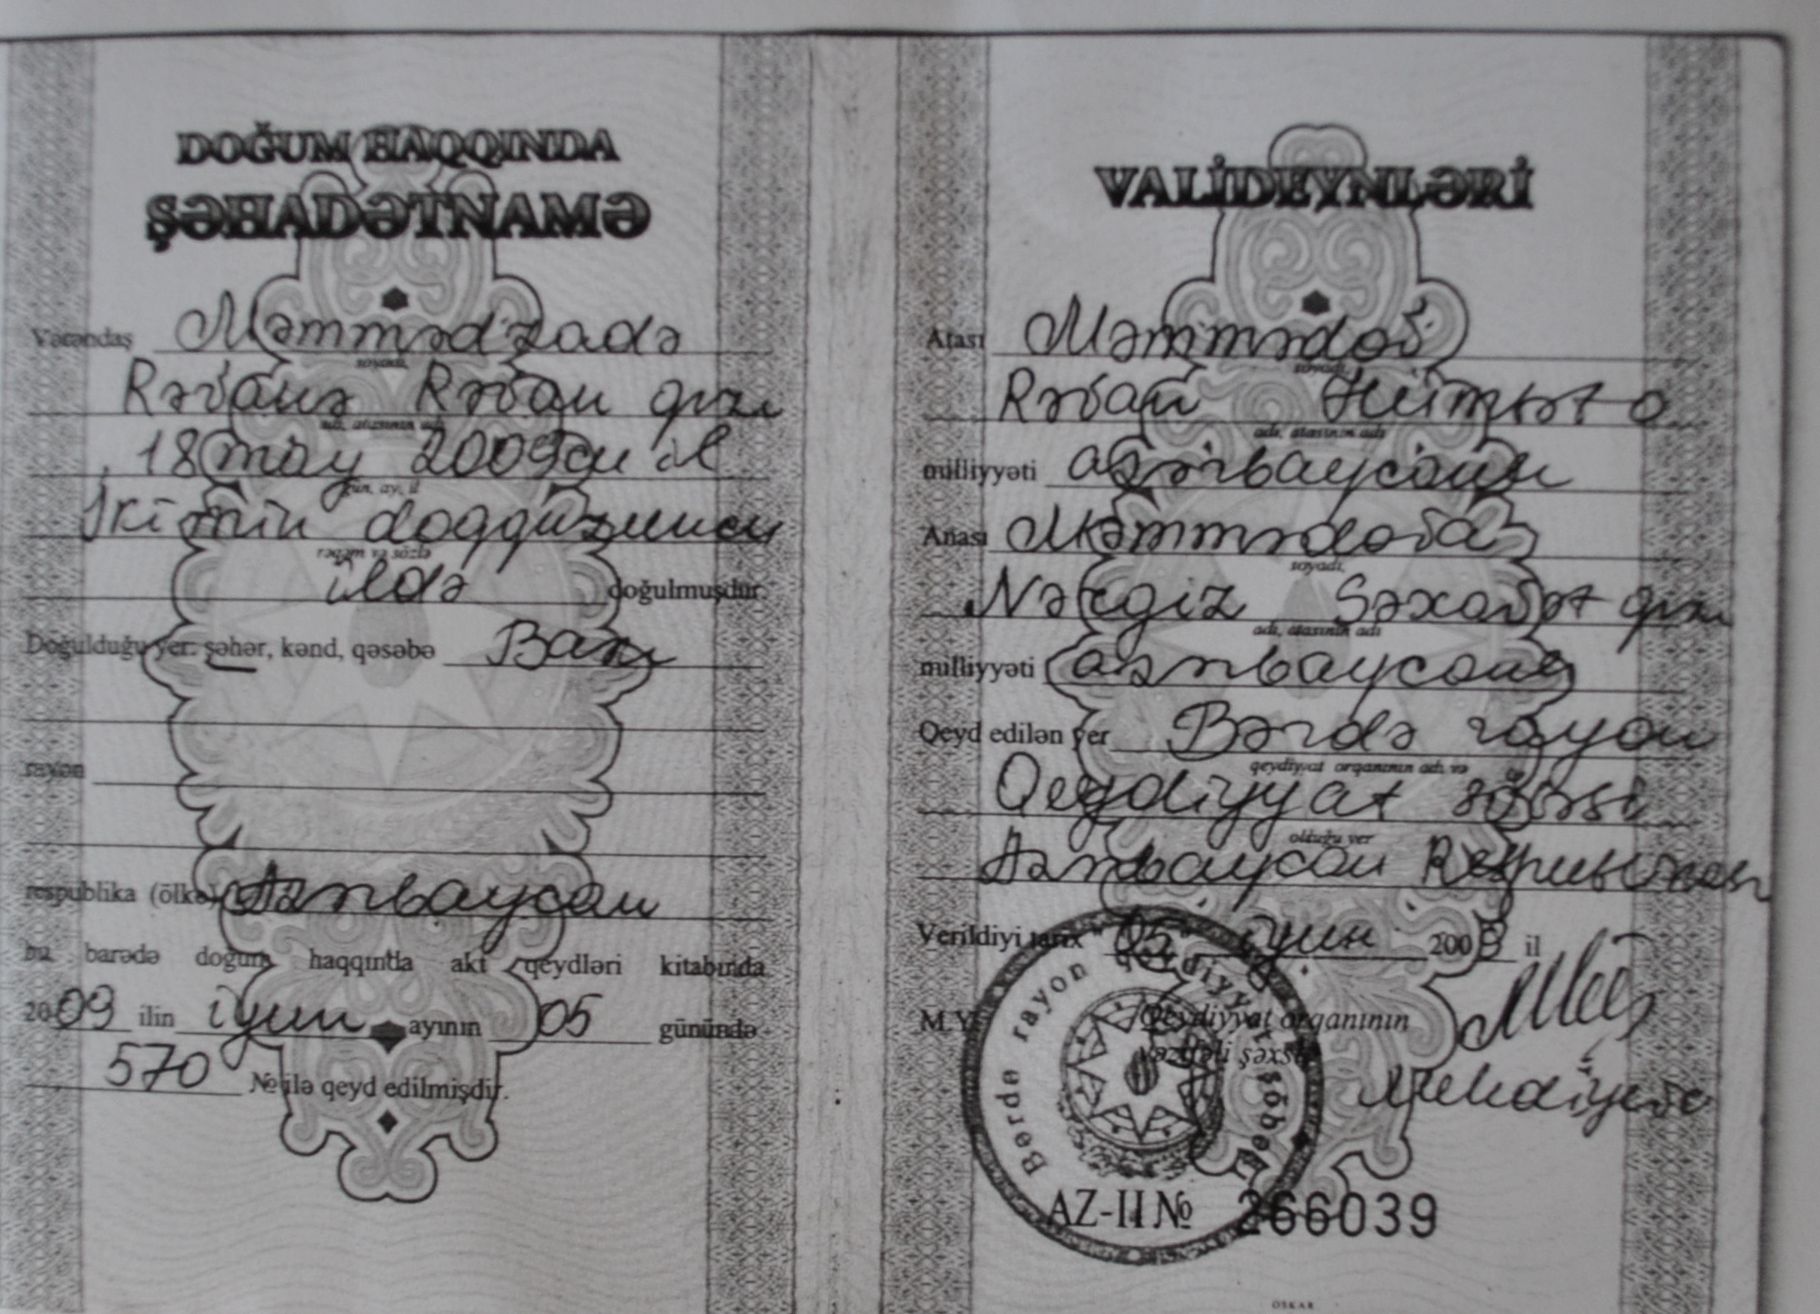 DOĞUM HAQQINDA
ŞƏHADƏTNAMƏ
Vətəndaş Məmmədzadə
soyadı,
Rəvanə Rəvan qızı
adı, atasının adı
18 may 2009cu il
gün, ay, il
İki min doqquzuncu
rəqəm və sözlə
ildə doğulmuşdur
Doğulduğu yer: şəhər, kənd, qəsəbə Bakı
rayon
respublika (ölkə) Azərbaycan
bu barədə doğum haqqında akt qeydləri kitabında
2009 ilin iyun ayının 05 günündə
570 № ilə qeyd edilmişdir.
VALİDEYNLƏRİ
Atası Məmmədov
soyadı,
Rəvan Hümbət o
adı, atasının adı
milliyyəti azərbaycanlı
Anası Məmmədova
soyadı,
Nərgiz Səxavət qızı
adı, atasının adı
milliyyəti azərbaycanlı
Qeyd edilən yer Bərdə rayon
qeydiyyat orqanının adı və
Qeydiyyat şöbəsi
olduğu yer
Azərbaycan Respublikası
Verildiyi tarix "05" iyun 2009 il
M.Y. Qeydiyyat orqanının
vəzifəli şəxsi
Bərdə rayon qeydiyyat şöbəsi
AZ-II № 266039
OSKAR